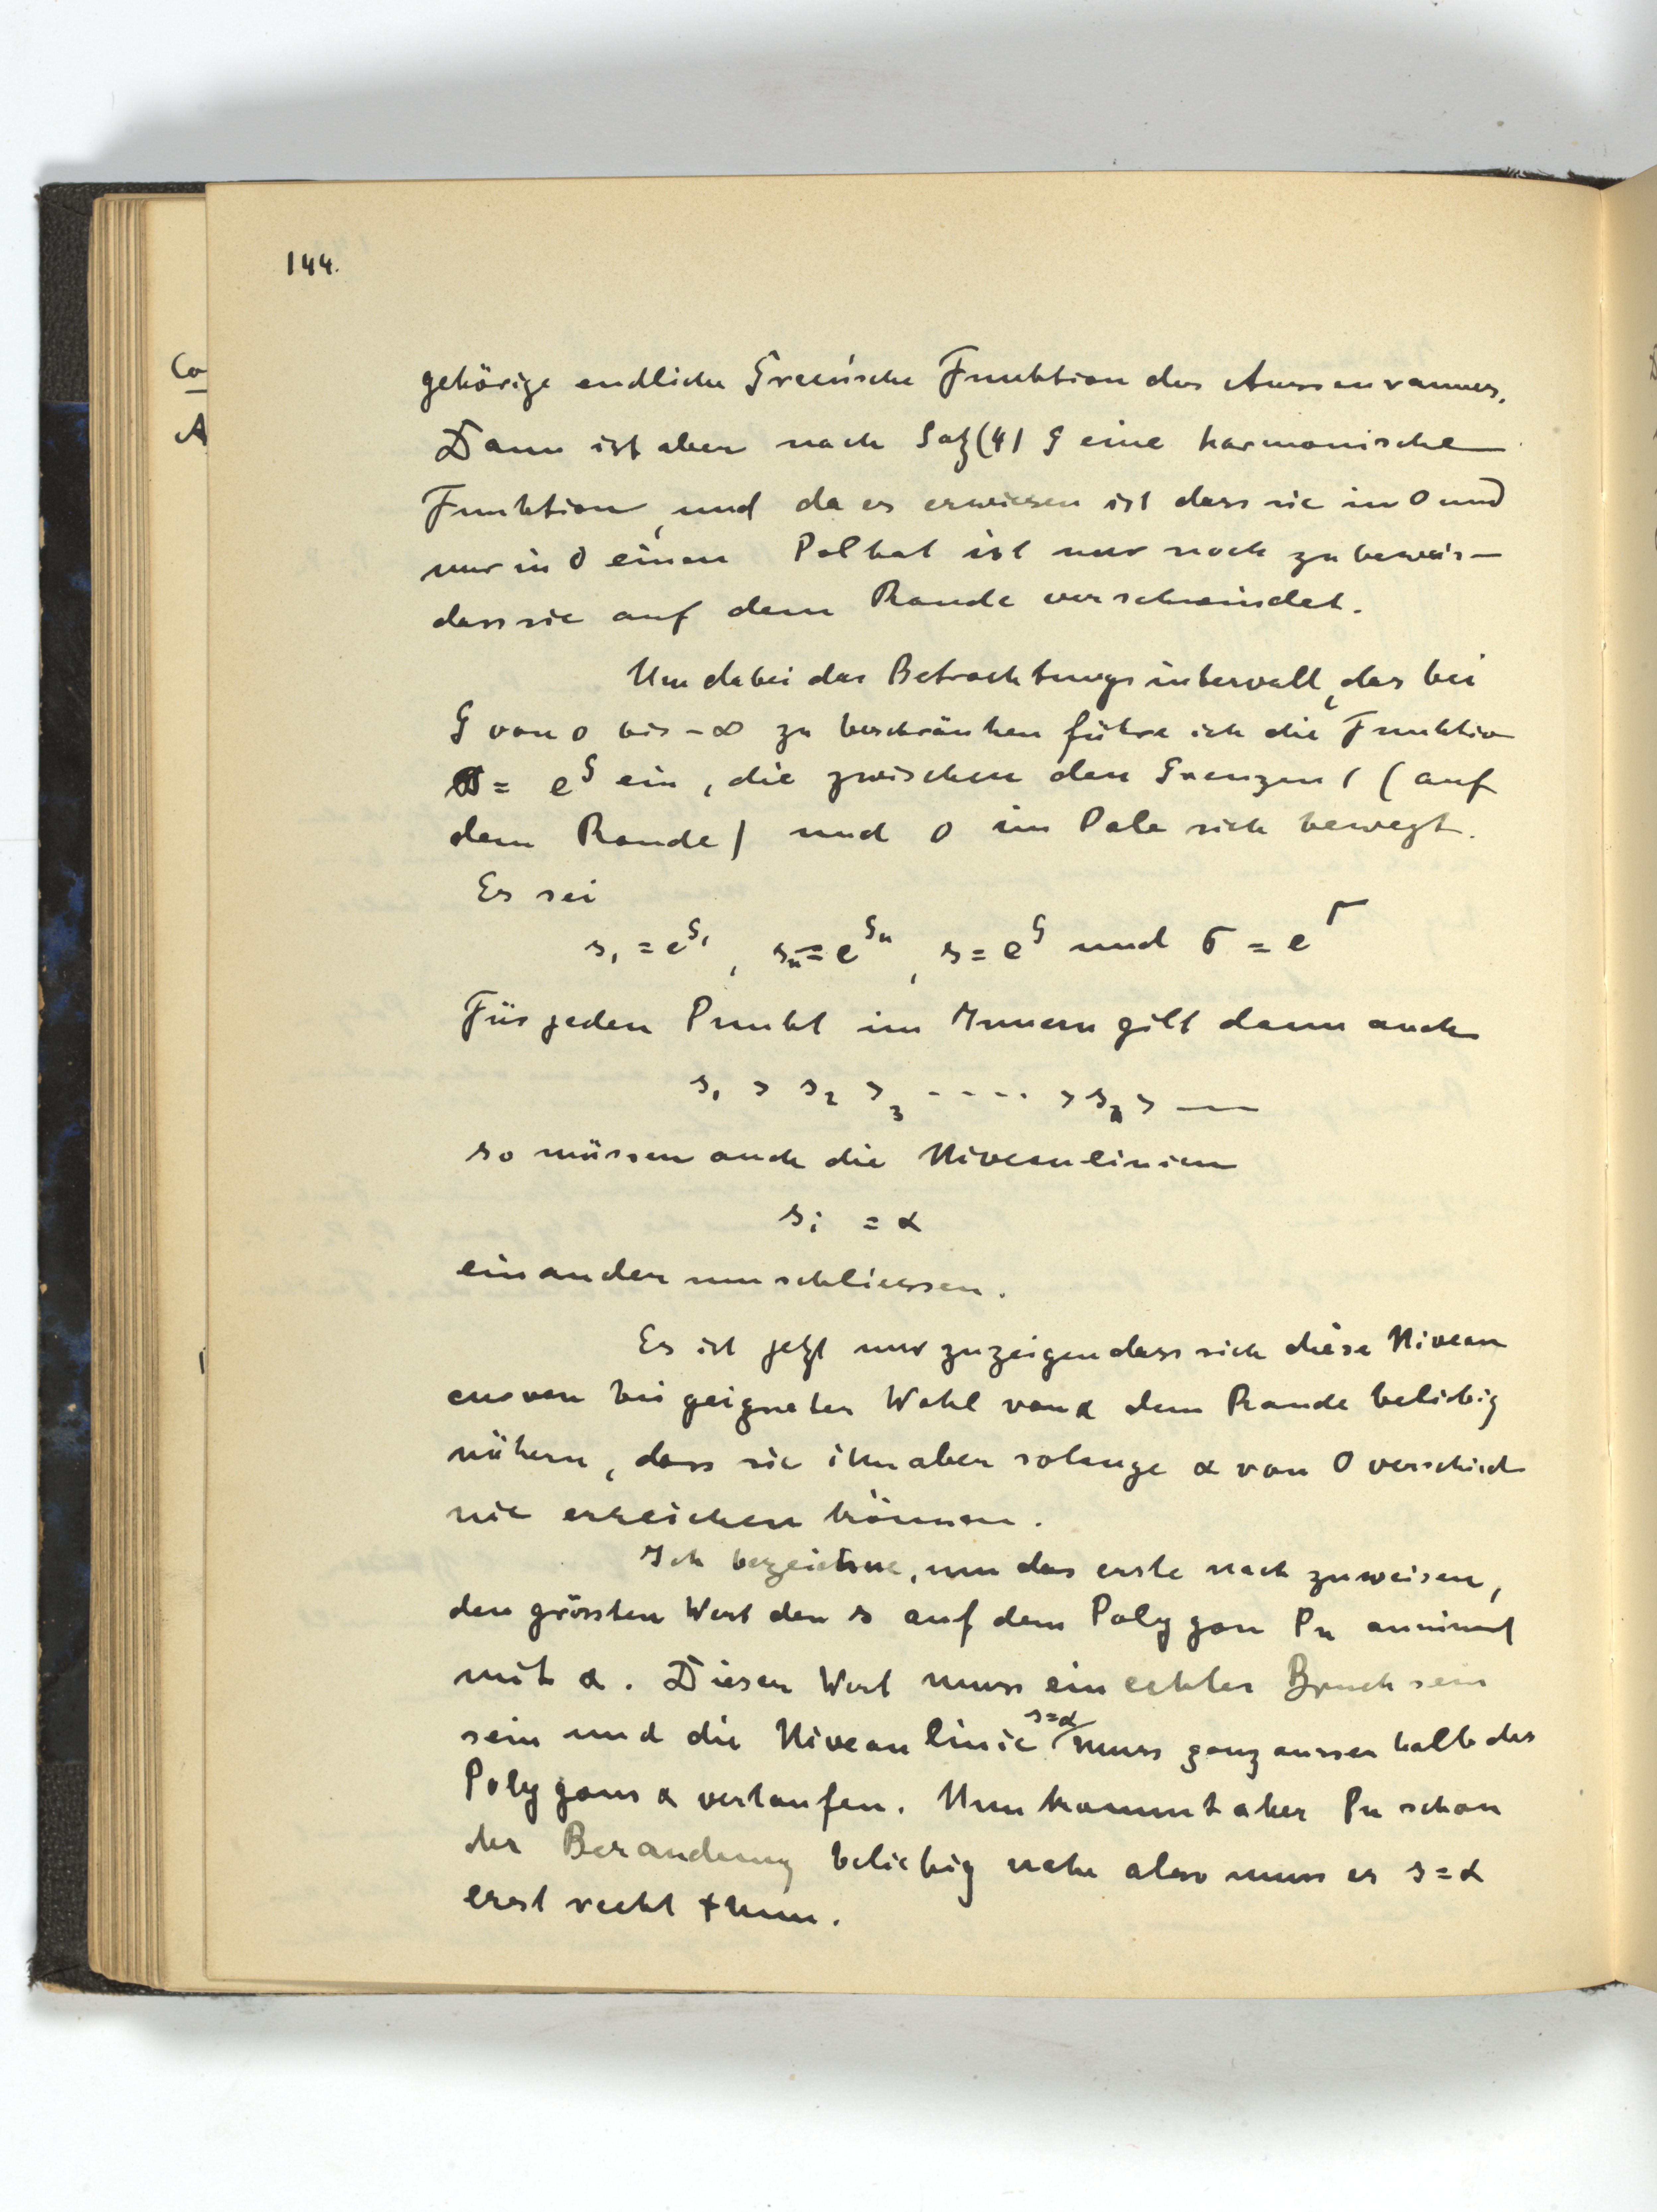 144.
Co
A
gehörige endliche Green'sche Funktion des Aussenraumes.
Dann ist aber nach Satz (4) G eine harmonische
Funktion, und da es erwiesen ist dass sie in O und
nur in O einen Pol hat ist nur noch zu beweis-
dass sie auf dem Rande verschwindet.
Um dabei das Betrachtungsintervall, das bei
G von 0 bis -∞ zu beschränken führe ich die Funktion
= e^G ein, die zwischen den Grenzen 1 (auf
dem Rande) und 0 im Pole sich bewegt.
Es sei
s₁ = e^G₁, sₙ = e^Gₙ, s = e^G und σ = e^Γ
Für jeden Punkt im Innern gilt dann auch
s₁ > s₂ > ₃ ---- > sₙ > —
so müssen auch die Niveaulinien
sᵢ = α
einander umschliessen.
Es ist jetzt nur zu zeigen dass sich diese Niveau
curven bei geigneter Wahl von α dem Rande beliebig
nähern, dass sie ihn aber solange α von 0 verschied
nie erreichen können.
Ich bezeichne, um das erste nachzuweisen,
den grössten Wert den s auf dem Polygon Pn annimmt
mit α. Dieser Wert muss ein echter Bruch sein
sein und die Niveaulinie s=α muss ganz ausserhalb des
Polygons α verlaufen. Nun kommt aber Pn schon
der Berandung beliebig nahe also muss es s=α
erst recht thun.